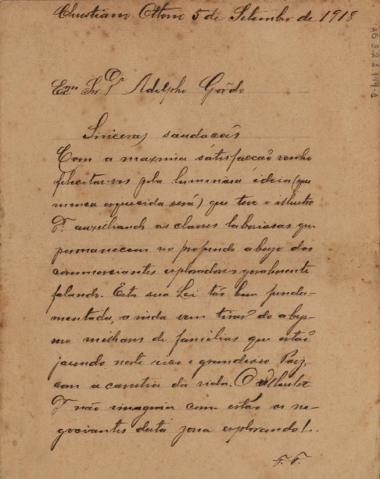 Christiano Ottoni 5 de Setembro de 1918
Exmo Snr Dr Adolpho Gordo
Sinceras saudacões
Com a maxmia sátisfaccão venho
felicitar-vos pela luminosa ideia (que
nunca esquecida será) que teve o illustre
Dr. auxiliando as classes laboriosas que
permanecem no profundo abysmo dos
commerciantes exploradores geralmente
falando. Esta sua Lei tão bem funda-
mentada, ainda vem tirar do abys-
mo milhões de familias que estão
jazendo neste rico e grandioso Paiz,
com a carestia da vida. O illustre
Dr não imagina como estão os ne-
gociantes desta zona explorando!..
F. F.